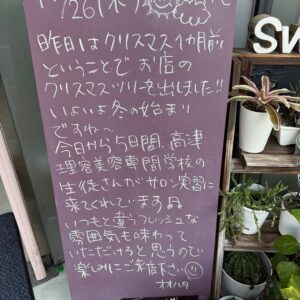 11/26(木)
SW
昨日はクリスマス1ヵ月前
ということで お店の
クリスマスツリーを出しました!!
いよいよ冬の始まり
ですね〜
今日から5日間、高津
理容美容専門学校の
生徒さんがサロン実習に
来てくれています♫
いつもと違うフレッシュな
雰囲気も味わって
いただけると思うので
楽しみにご来店下さい☺
オオハタ